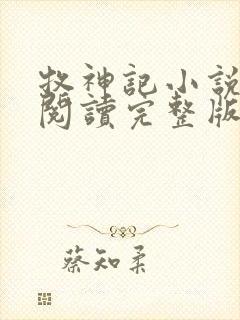 牧神記小說
閱讀完整版
蔡知柔